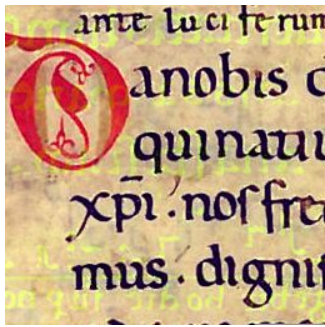 ante luciferum
Da nobis
qui natu
xp̄i nos fre
mus. digni